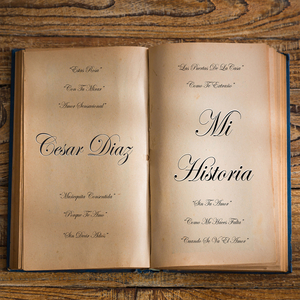 "Estas Rosas"
"Con Tu Mirar"
"Amor Sensacional"
Cesar Diaz
"Muñequita Consentida"
"Porque Te Amo"
"Sin Decir Adios"
"Las Puertas De La Casa"
"Como Te Extraño"
Mi
Historia
"Sin Tu Amor"
"Como Me Haces Falta"
"Cuando Se Va El Amor"